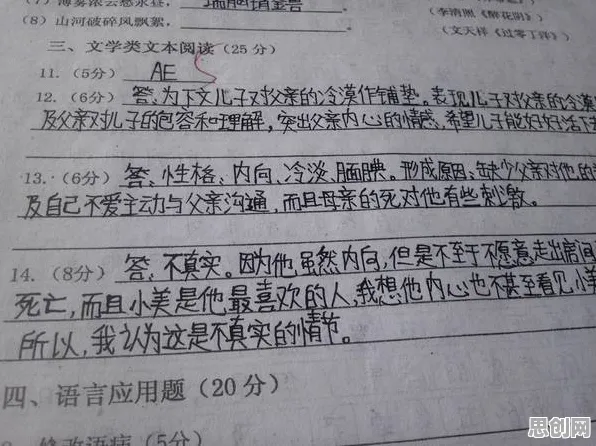 (7) 薄雾浓云愁永昼，瑞脑销金兽
(李清照《醉花阴》)
(8) 山河破碎风飘絮，
(文天祥《过零丁洋》)
三、文学类文本阅读(25分)
11. (5分) AE
12. (6分) 答:为下文儿子对父亲的冷漠作铺垫。表现儿子对父亲的冷漠
及父亲对儿子的包容和理解，突出父亲内心的情感，希望儿子能好好活下去
13. (6分) 答:性格:内向、冷淡、腼腆。形成原因:缺少父亲对他的
及自己不爱主动与父亲沟通，而且母亲的死对他有些刺激。
14. (8分) 答:不真实。因为他虽然内向，但是不至于不愿意走出房间
死亡，而且小美是他最喜欢的人，我想他内心也不甚至看见小美
所以，我认为这是不真实的情节。
四、语言应用题(20分)
修改语病(5分)
思创网